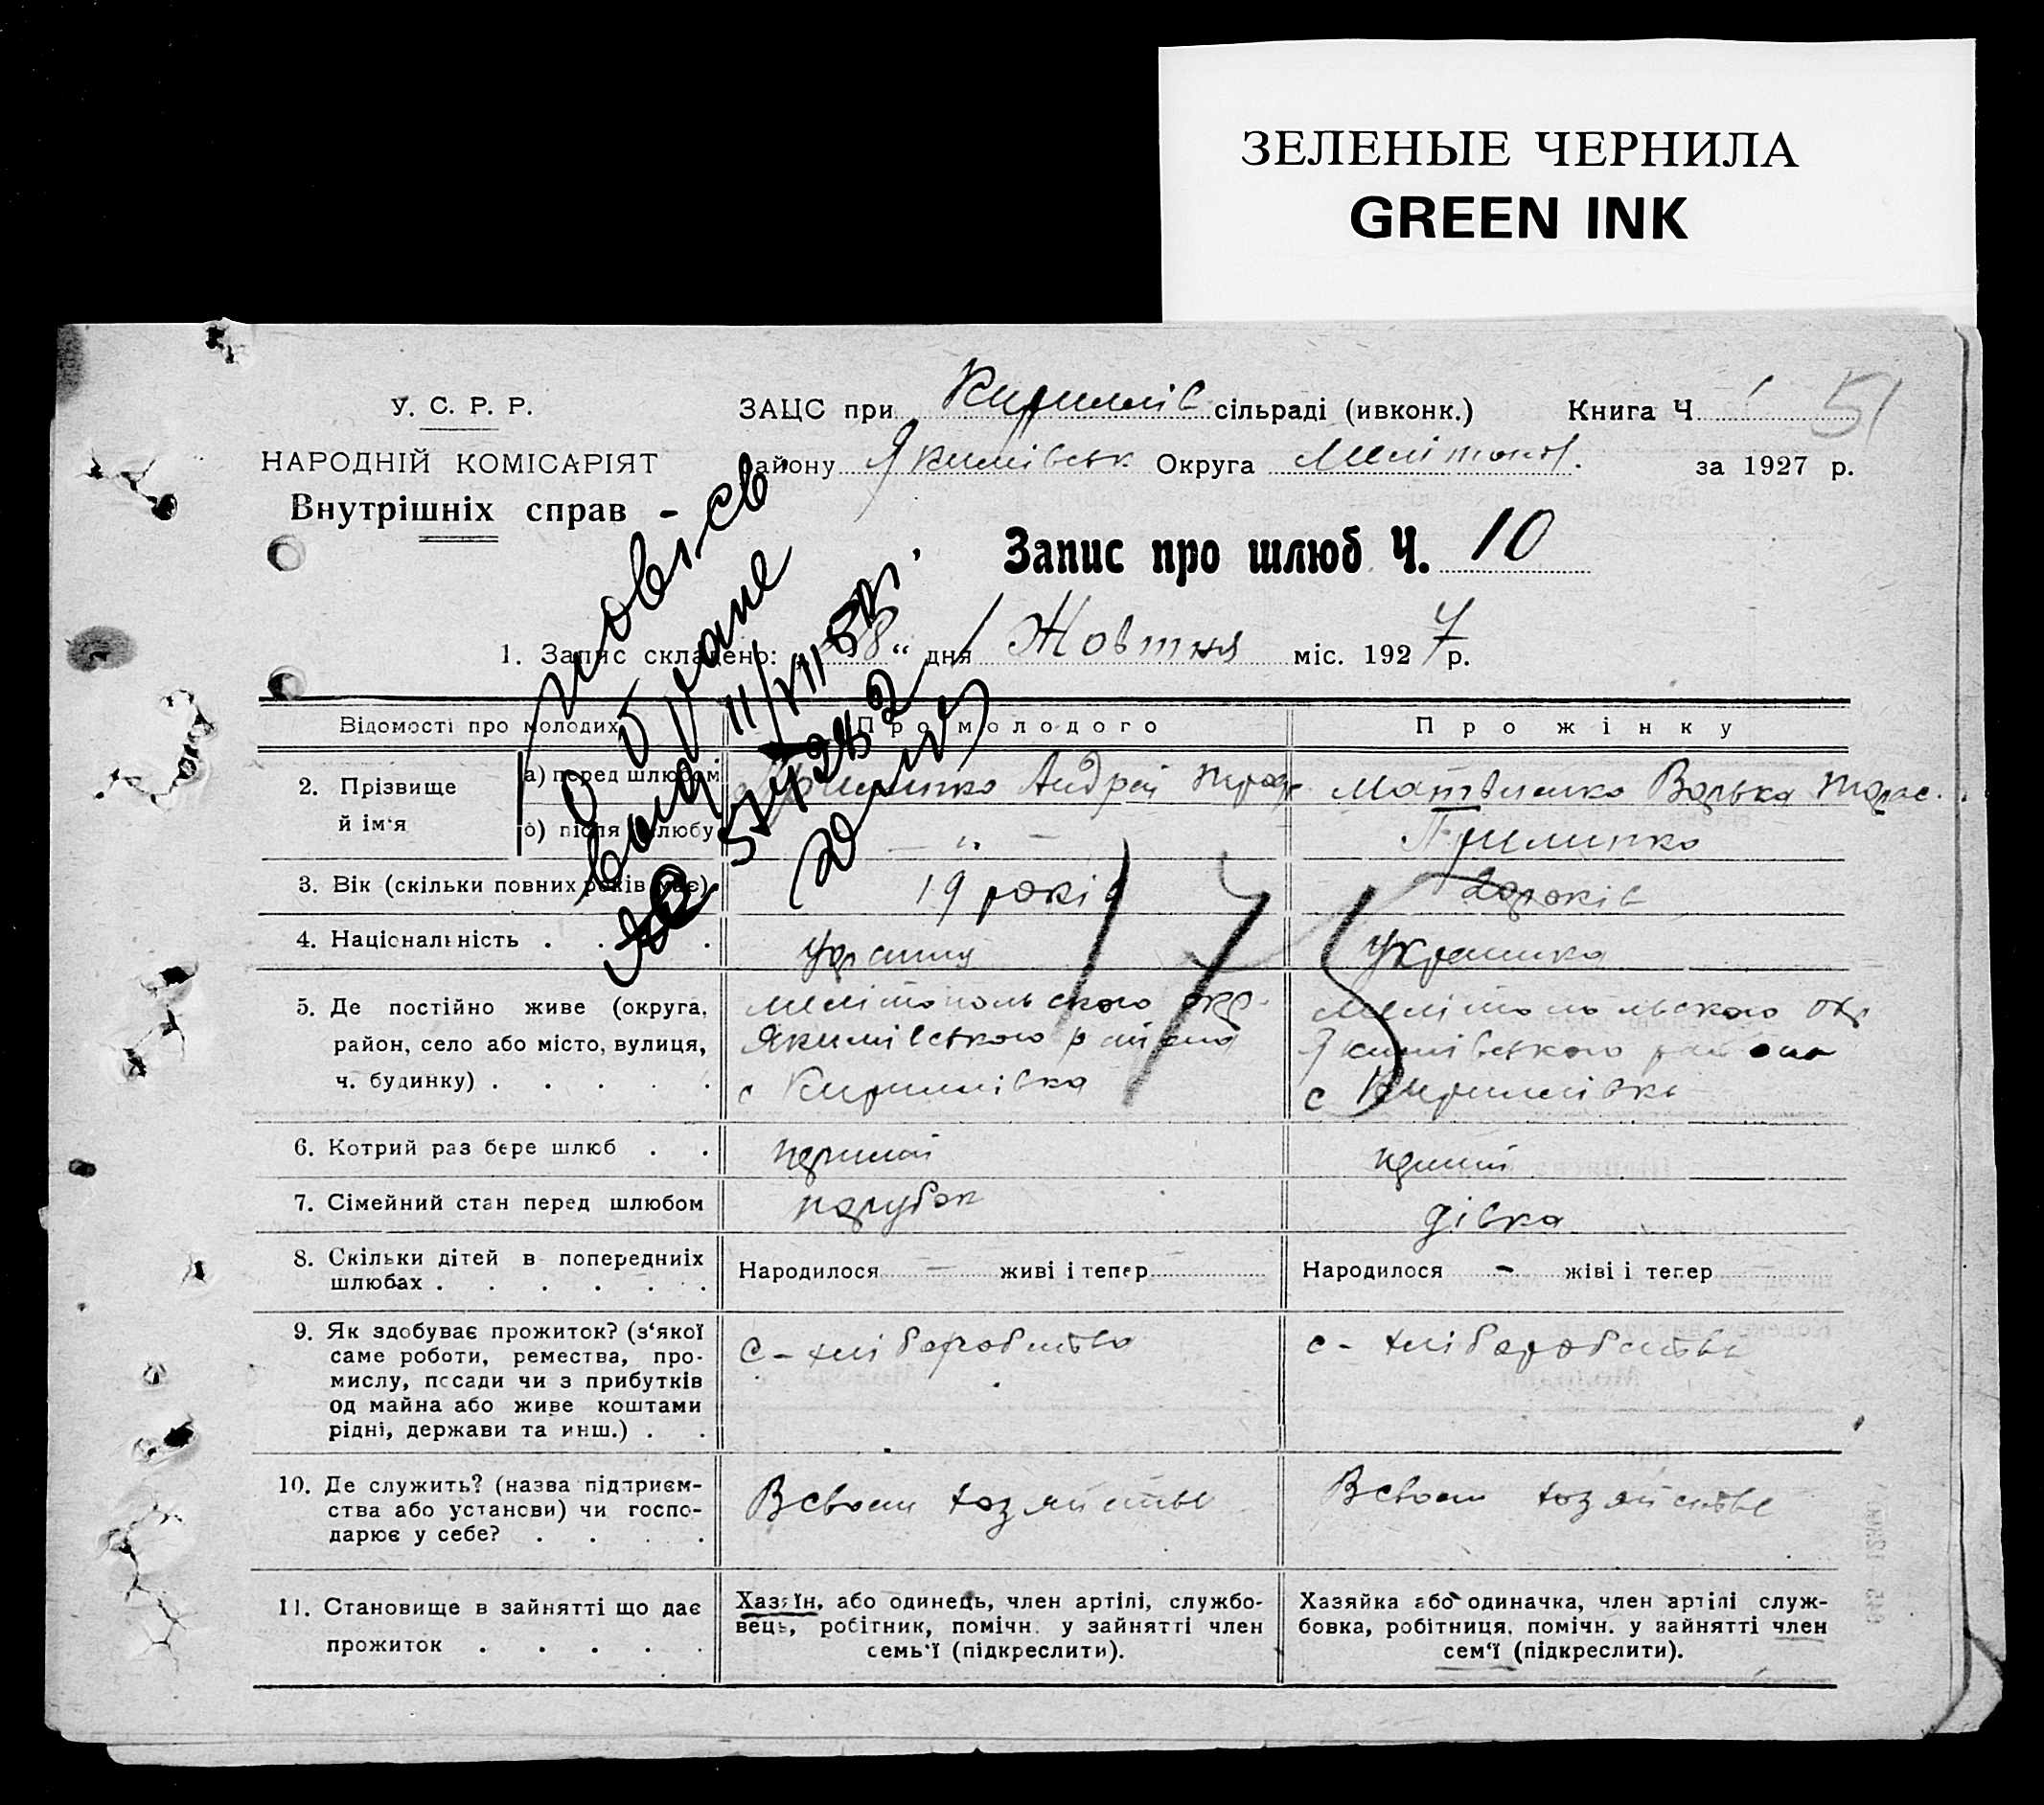 ЗЕЛЕНЫЕ ЧЕРНИЛА
GREEN INK
У. С. Р. Р.
НАРОДНІЙ КОМІСАРІЯТ
Внутрішніх справ -
ЗАЦС при Кирилів сільраді (ивконк.) Книга Ч 1 51
району Якимівськ Округа Мелітопол. за 1927 р.
Запис про шлюб Ч. 10
1. Запис складено: 8 " дня Жовтня міс. 1927 р.
Відомості про молодих
Про молодого
Про жінку
2. Прізвище й ім'я
а) перед шлюбом
Андрій
Матвієнко
б) після шлюбу
— " —
Прилипко
3. Вік (скільки повних років має)
19 років
20 років
4. Національність . . .
Українка
175
5. Де постійно живе (округа,
район, село або місто, вулиця,
ч. будинку) . . . . .
Мелітопольского окр.
Якимівського района
с Кирилівка
Мелітопольского окр
Якимівського района
с Кирилівкі
6. Котрий раз бере шлюб . .
перший
перший
7. Сімейний стан перед шлюбом
парубок
дівка
8. Скільки дітей в попередниіх
шлюбах . . . . . .
Народилося — живі і тепер
Народилося - жіві і тепер
9. Як здобуває прожиток? (з'якої
саме роботи, ремества, про-
мислу, песади чи з прибутків
од майна або живе коштами
рідні, держави та инш.) . .
с - хліборобство
с - хліборобство
10. Де служить? (назва підприєм-
ства або установи) чи госпо-
дарює у себе? . . . .
В своем хозяйстве
В своем хозяйстве
11. Становище в зайнятті що дає
прожиток . . . . .
Хазяїн, або одинець, член артілі, службо-
вець, робітник, помічн. у зайнятті член
семь'ї (підкреслити).
Хазяйка або одиначка, член артілі служ-
бовка, робітниця, помічн. у зайнятті член
сем'ї (підкреслити).